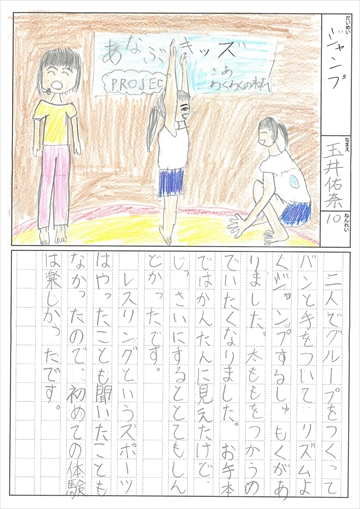 だいめい
ジャンプ
なまえ
玉井佑奈
ねんれい
10
あなぶキッズ
PROJEC
さあ
わくわくの村へ
二人でグループをつくって
バンと手をついて、リズムよ
くジャンプするしゅもくがあ
りました。太ももをつかうの
でいたくなりました。お手本
ではかんたんに見えたけど、
じっさいにするととてもしん
どかったです。
レスリングというズポーツ
はやったことも聞いたことも
なかったので、初めての体験
は楽しかったです。